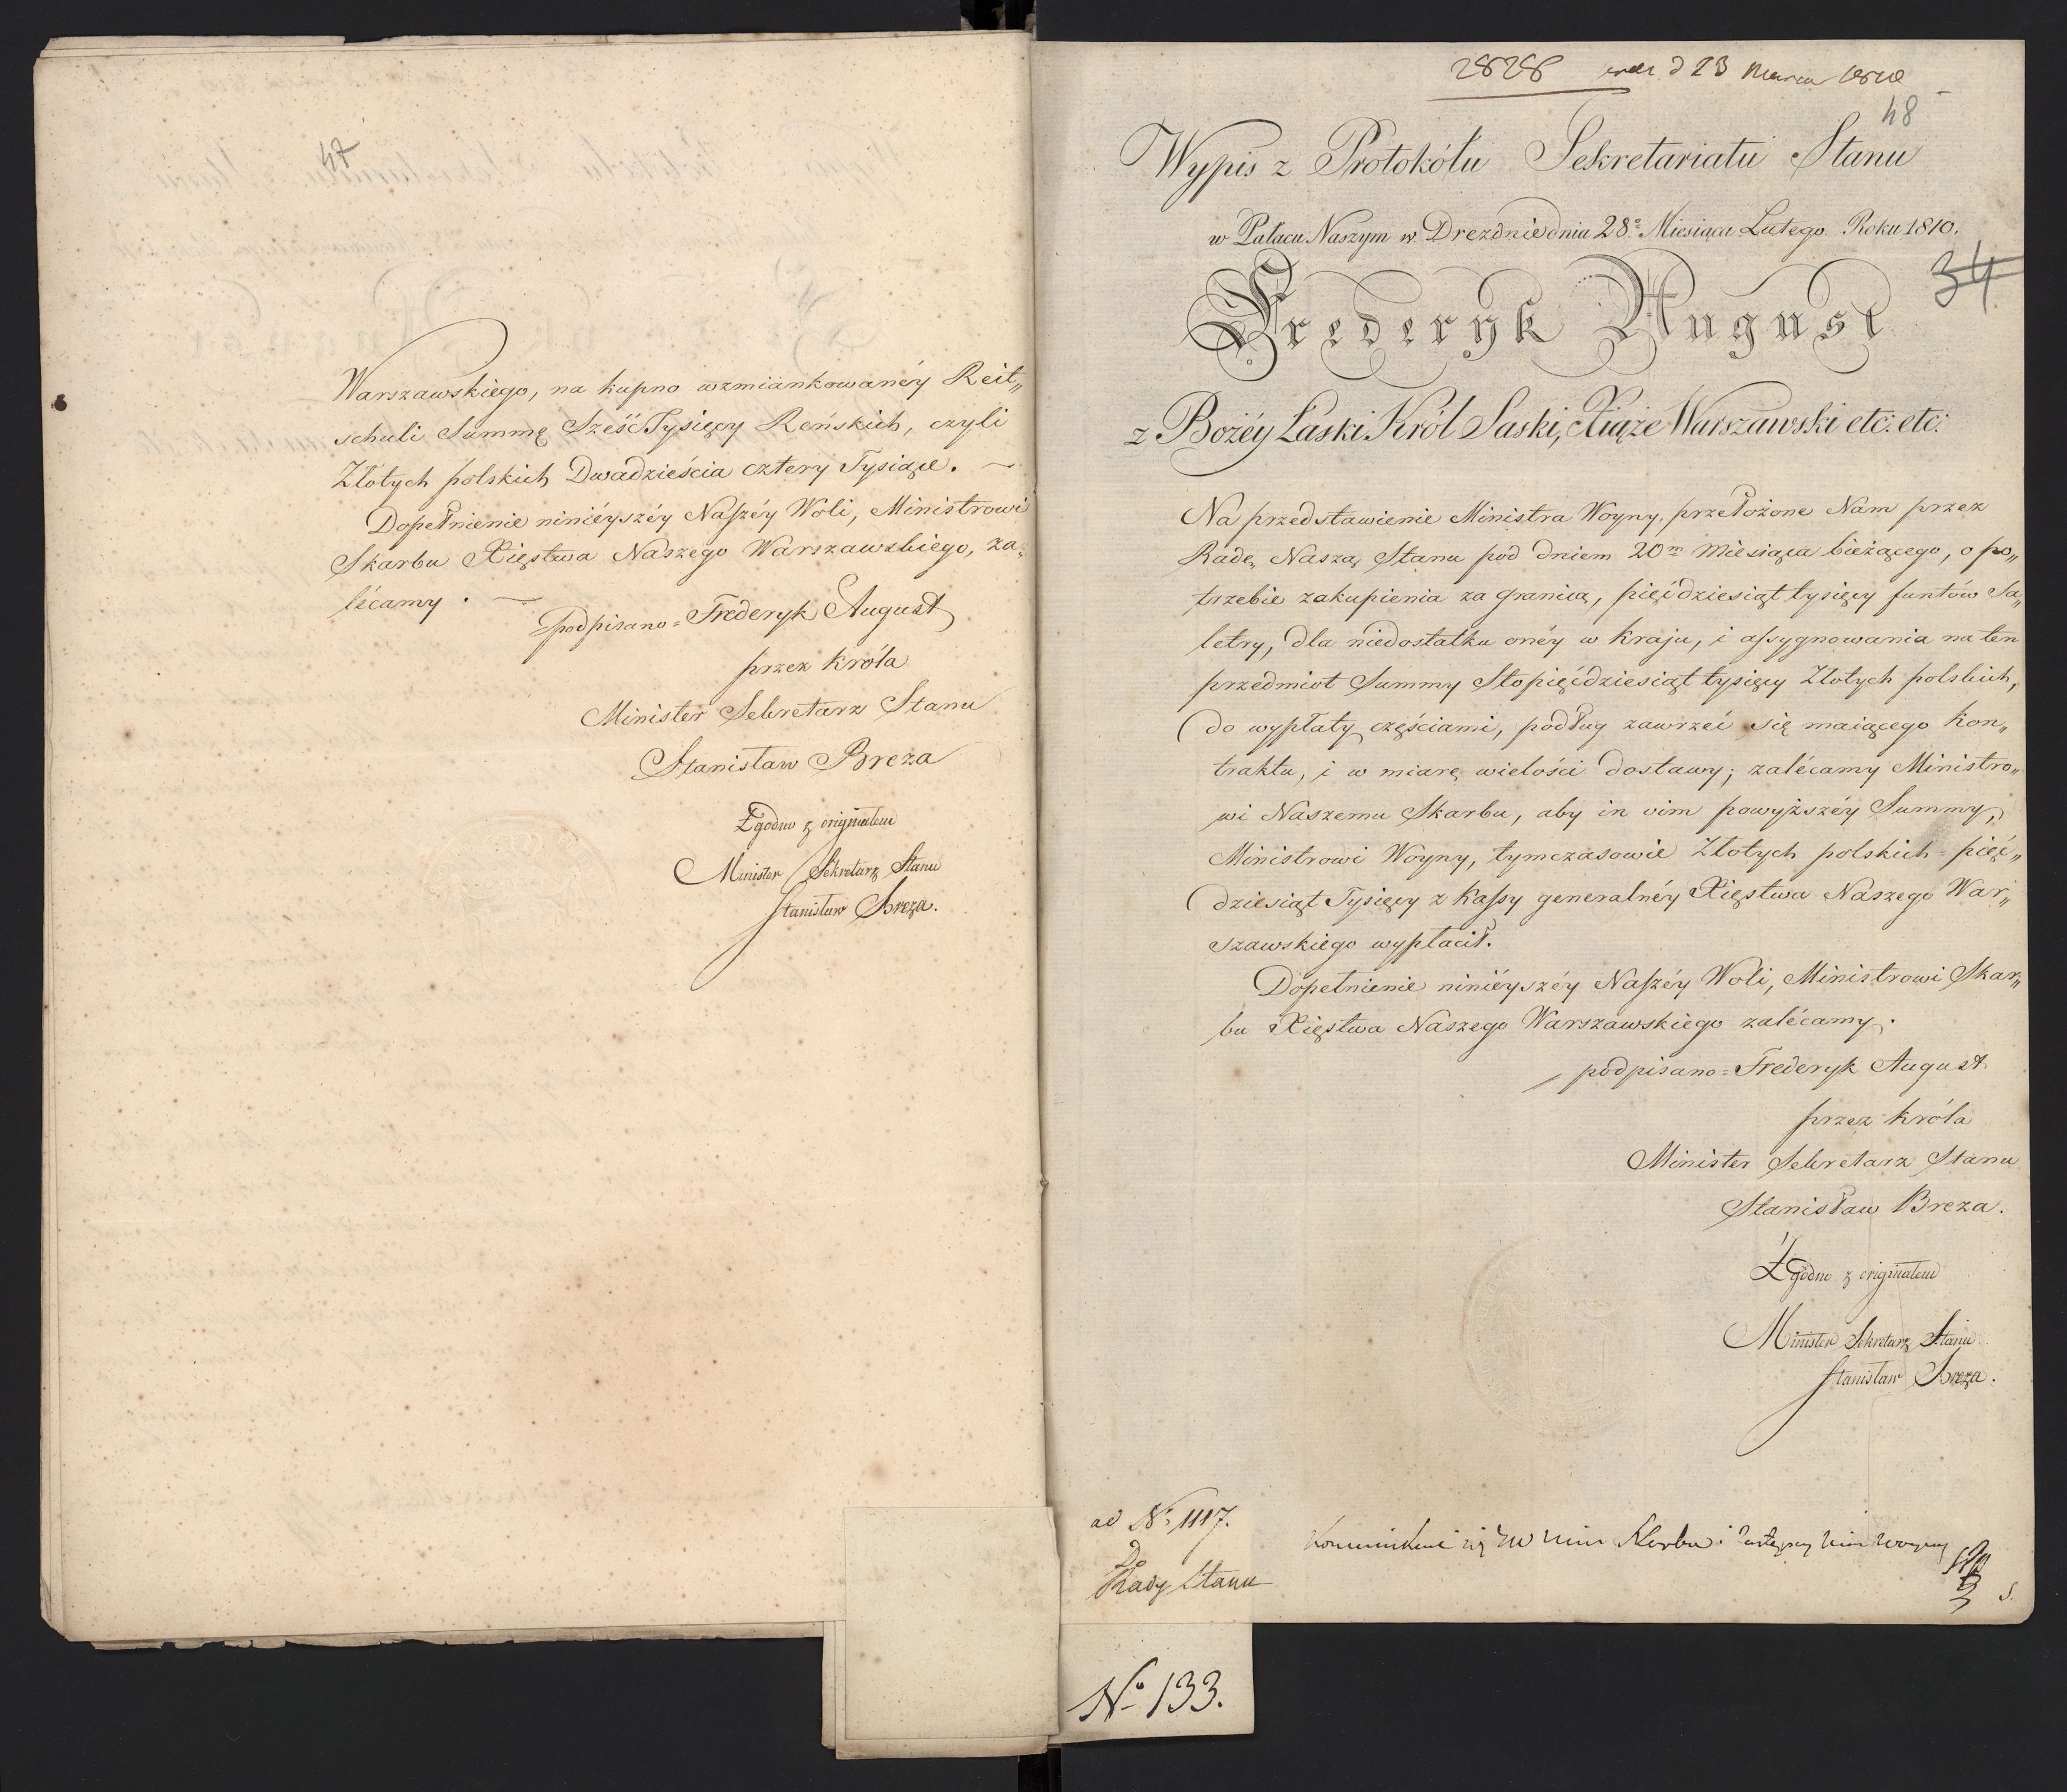 47
Warszawskiego, na kupno wzmiankowanéy Reit„
schuli Summę Sześć Tysięcy Reńskich, czyli
Złotych polskich Dwadzieścia cztery Tysiące. —
Dopełnienie ninieyszéy Naszéy Woli, Ministrowi
Skarbu Xięstwa Naszego Warszawskiego, za„
lécamy. —
podpisano = Frederyk August
przez Króla
Minister Sekretarz Stanu
Stanisław Breza
Zgodno z originałem
Minister Sekretarz Stanu
Stanisław Breza.
2828 d 23 Marca 1810
48
Wypis z Protokółu Sekretariatu Stanu
w Pałacu Naszym w Dreznie dnia 28.o Miesiąca Lutego Roku 1810.
34
Frederyk August
z Bożéy Łaski Król Saski, Xiąże Warszawski etc: etc:
Na przedstawienie Ministra Woyny, przełożone Nam przez
Radę Naszą Stanu pod dniem 20m Miesiąca bieżącego, o po„
trzebie zakupienia za granicą, pięćdziesiąt tysięcy funtów Sa„
letry, dla niedostatku onéy w kraju, i assygnowania na ten
przedmiot Summy Stopięćdziesiąt tysięcy Złotych polskich,
do wypłaty częściami, podług zawrzeć się maiącego Kon„
traktu, i w miarę wielości dostawy; zalécamy Ministro„
wi Naszemu Skarbu, aby in vim powyższéy Summy,
Ministrowi Woyny, tymczasowie Złotych polskich = pięć„
dziesiąt Tysięcy z Kassy generalnéy Xięstwa Naszego War„
szawskiego wypłacił.
Dopełnienie ninieyszéy Naszéy Woli, Ministrowi Skar„
bu Xięstwa Naszego Warszawskiego zalécamy.
podpisano = Frederyk August.
przez Króla
Minister Sekretarz Stanu
Stanisław Breza.
Zgodno z originałem
Minister Sekretarz Stanu
Stanisław Breza.
ad No 1117.
Do
Rady Stanu
Skarbu i Woyny
No 133.